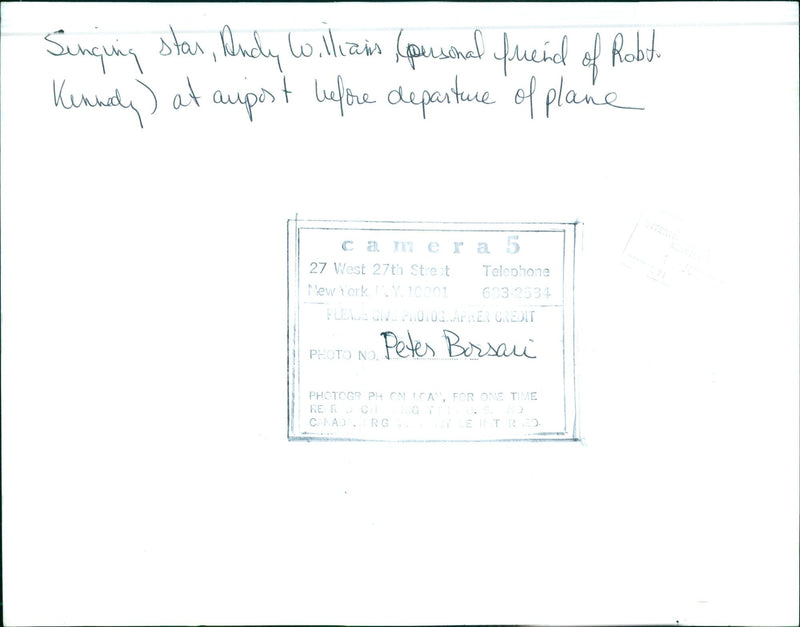 Singing star, Andy Williams, (personal friend of Robt.
Kennedy) at airport before departure of plane
camera 5
27 West 27th Street Telephone
New York, N.Y. 10001 683-2534
PLEASE GIVE PHOTOGRAPHER CREDIT
PHOTO NO. Peter Borsari
PHOTOGRAPH ON LOAN, FOR ONE TIME